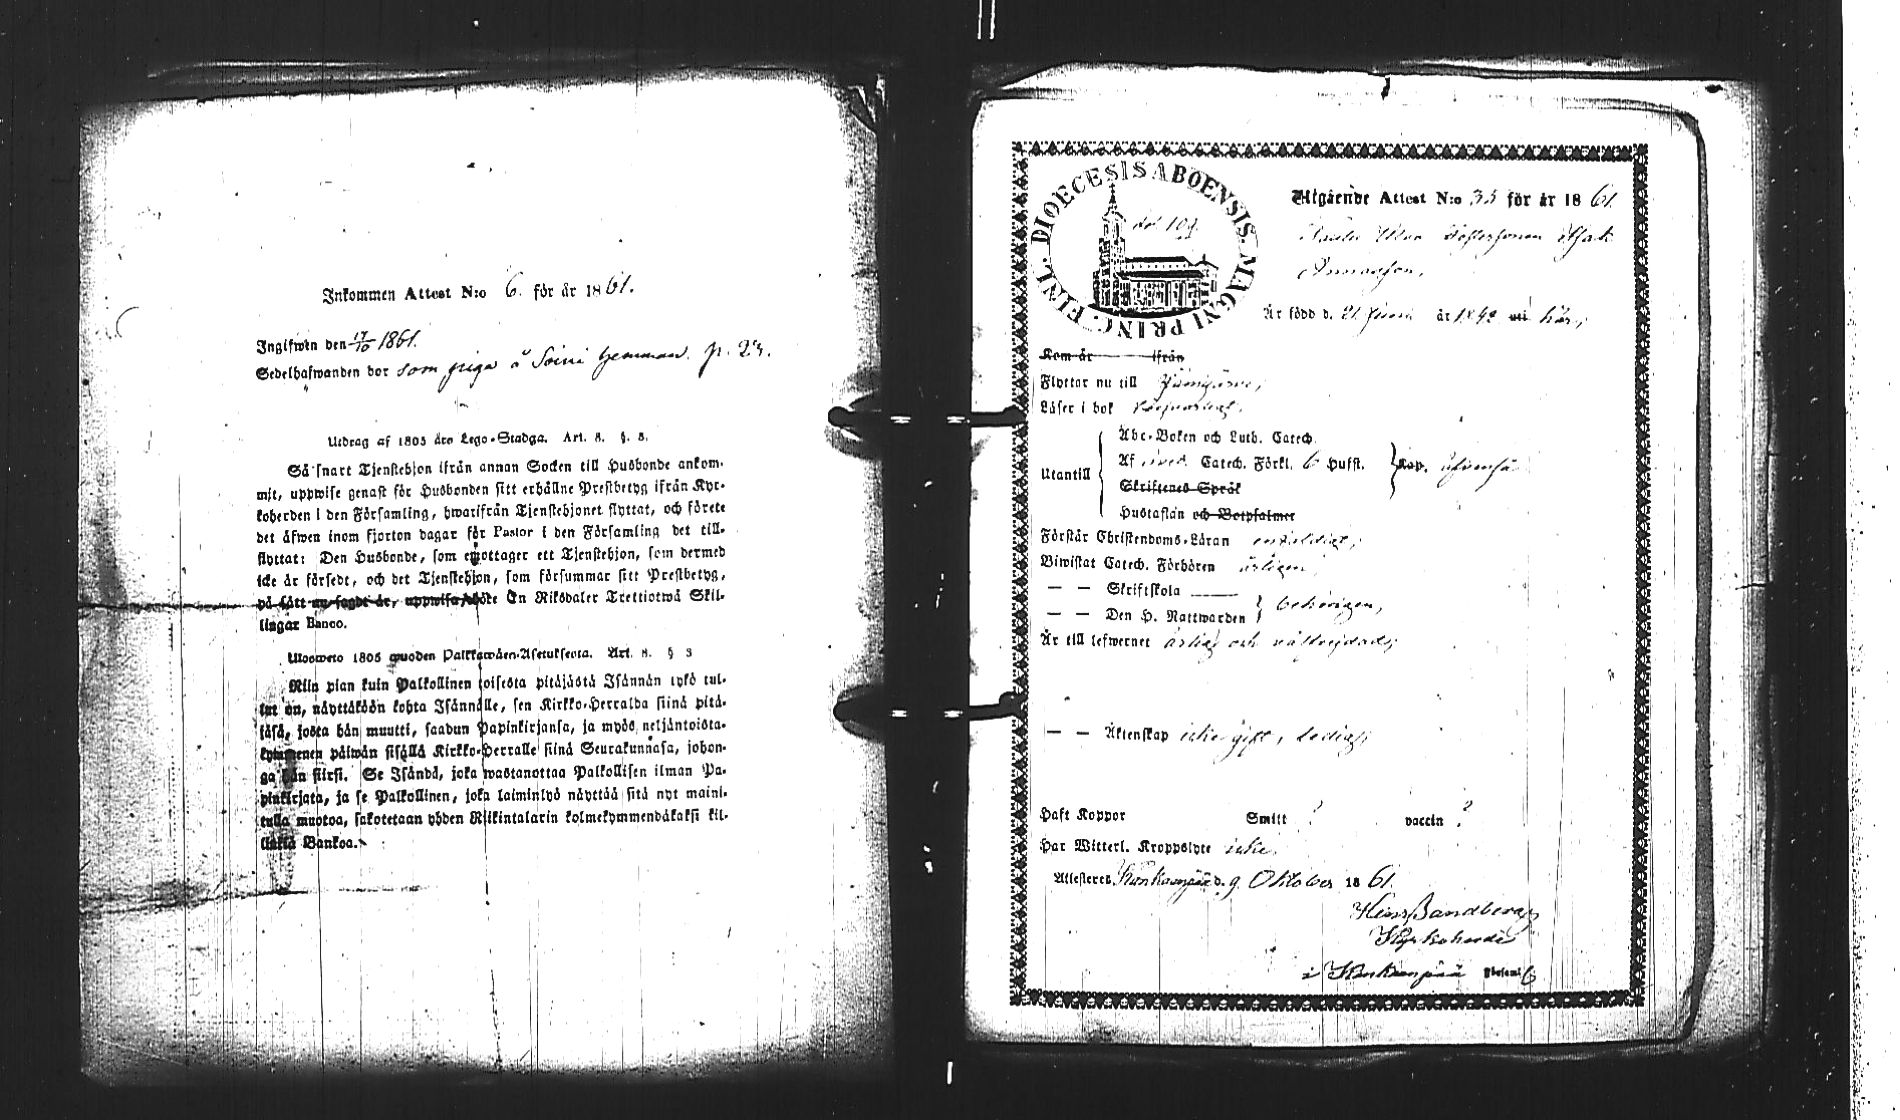 Inkommen Attest N:o 6. för år 1861.
Ingifwen den 17/10 1861.
Sedelhafwanden bor som piga å Soini hemman. p. 23.
Utdrag af 1805 års Lego-Stadga. Art. 8. §. 3.
Så snart Tjenstehjon ifrån annan Socken till Husbonde ankom-
mit, uppwise genast för Husbonden sitt erhållne Prestbetyg ifrån Kyr-
koherden i den Församling, hwarifrån Tjenstehjonet flyttat, och förete
det äfwen inom fjorton dagar för Pastor i den Församling det till-
flyttat: Den Husbonde, som emottager ett Tjenstehjon, som dermed
icke är försedt, och det Tjenstehjon, som försummar sitt Prestbetyg,
på sätt nu sagdt är, uppwisa, böte En Riksdaler Trettiotwå Skil-
lingar Banco.
Ulosweto 1805 wuoden Palkkawäen-Asetuksesta. Art. 8. § 3
Niin pian kuin Palkollinen toisesta pitäjästä Isännän tykö tul-
lut on, näyttäköön kohta Isännälle, sen Kirkko-Herralda siinä pitä-
jäsä, josta hän muutti, saadun Papinkirjansa, ja myös neljäntoista-
kymmenen päiwän sisällä Kirkko-Herralle siinä Seurakunnasa, johon-
ga hän siirsi. Se Isändä, joka wastanottaa Palkollisen ilman Pa-
pinkirjata, ja se Palkollinen, joka laiminlyö näyttää sitä nyt maini-
tulla muotoa, sakotetaan yhden Riikintalarin kolmekymmendäkaksi kil-
lingiä Bankoa.
DIOECESIS ABOENSIS. MAGNI PRINC. FINL.
Utgående Attest N:o 35 för år 1861.
Är född d. 21 Juni år 1842 här;
Kom år ifrån
Flyttar nu till Jämijärvi,
Läser i bok
Abc-Boken och Luth. Catech.
Utantill Af Catech. Förkl. 6 Hufst. Kap.
Skriftenes Språk
Hustaflan och Botpsalmer
Förstår Christendoms-Läran enfaldigt;
Biwistat Catech. Förhören årligen,
— — Skriftskola
— — Den H. Nattwarden behörigen,
Är till lefwernet ärlig och välfrejdad;
— — Äktenskap icke gift, ledig;
Haft Koppor Smitt ? vaccin ?
Har Witterl. Kroppslyte icke.
Attesteres Kankaanpää d. 9 Oktober 1861.
Sandberg
Kyrkoherde
i Kankaanpää